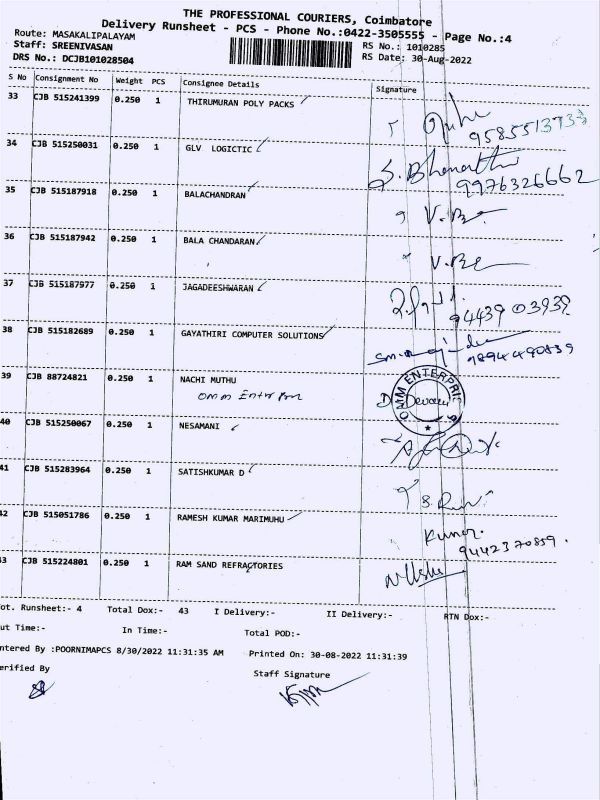 THE PROFESSIONAL COURIERS, Coimbatore
Delivery Runsheet - PCS - Phone No.:0422-3505555 - Page No.:4
Route: MASAKALIPALAYAM
Staff: SREENIVASAN RS No.: 1010285
DRS No.: DCJB101028504 RS Date: 30-Aug-2022
S No Consignment No Weight PCS Consignee Details Signature
33 CJB 515241399 0.250 1 THIRUMURAN POLY PACKS
34 CJB 515250031 0.250 1 GLV LOGICTIC S. Bharathi
9976326662
35 CJB 515187918 0.250 1 BALACHANDRAN
36 CJB 515187942 0.250 1 BALA CHANDARAN.
37 CJB 515187977 0.250 1 JAGADEESHWARAN
94439 03939
38 CJB 515182689 0.250 1 GAYATHIRI COMPUTER SOLUTIONS
39 CJB 88724821 0.250 1 NACHI MUTHU
OMM ENTERPRISES
D Devan
40 CJB 515250067 0.250 1 NESAMANI
41 CJB 515283964 0.250 1 SATISHKUMAR D
42 CJB 515051786 0.250 1 RAMESH KUMAR MARIMUHU Kumar.
9442370859.
43 CJB 515224801 0.250 1 RAM SAND REFRACTORIES
ot. Runsheet:- 4 Total Dox:- 43 I Delivery:- II Delivery:- RTN Dox:-
ut Time:- In Time:- Total POD:-
ntered By :POORNIMAPCS 8/30/2022 11:31:35 AM Printed On: 30-08-2022 11:31:39
erified By Staff Signature